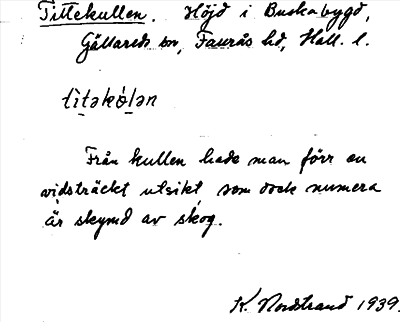 Tittekullen. Höjd i Buskabygd,
Gällareds sn, Faurås hd, Hall. l.
tìtəkólən
Från kullen hade man förr en
vidsträckt utsikt, som dock numera
är skymd av skog.
K. Nordstrand 1939.